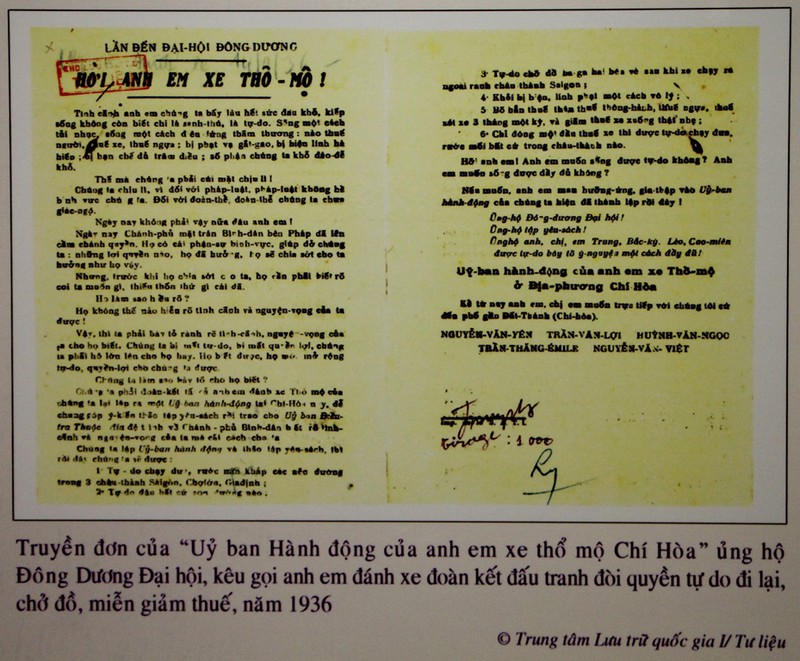 LẦN ĐẾN ĐẠI-HỘI ĐÔNG DƯƠNG
HỠI, ANH EM XE THỔ-MỘ !
Tình cảnh anh em chúng ta bấy lâu hết sức đau khổ, kiếp
sống không còn biết chi là
nhục, sống một cách thảm thương : nào thuế
người, thuế xe, thuế ngựa ; bị phạt vạ gắt-gao, bị biện lính hà
hiếp ; bị bạn chế đủ trăm điều ; số phận chúng ta khổ đáo-để
khổ.
Thế mà chúng ta phải cúi mặt chịu lì !
Chúng ta chịu lì, vì đối với pháp-luật, pháp-luật không hề
binh vực chúng ta. Đối với đoàn-thể, đoàn-thể chúng ta chưa
giác-ngộ.
Ngày nay không phải vậy nữa đâu anh em !
Ngày nay Chánh-phủ mặt trận Bình-dân bên Pháp đã lên
cầm chánh quyền. Họ có cái phận-sự binh-vực, giúp đỡ chúng
ta : những lợi quyền nào, họ đã hưởng, họ sẽ chia sớt cho ta
hưởng như họ vậy.
Nhưng, trước khi họ chia sớt cho ta, họ cần phải biết rõ
coi ta muốn gì, thiếu thốn thứ gì cái đã.
Họ làm sao hiểu rõ ?
Họ không thể nào hiểu rõ tình cảnh và nguyện-vọng của ta
được !
Vậy, thì ta phải bày tỏ rành rẽ tình-cảnh, nguyện-vọng của
ta cho họ biết. Chúng ta bị mất tự-do, bị mất quyền lợi, chúng
ta phải hô lớn lên cho họ hay. Họ biết được, họ mới mở rộng
tự-do, quyền-lợi cho chúng ta được.
Chúng ta làm sao bày tỏ cho họ biết ?
Chúng ta phải đoàn-kết tất cả anh em đánh xe Thổ mộ của
chúng ta lại lập ra một Uỷ ban hành-động tại Chí-Hòa này, để
chung góp ý-kiến thảo lập yêu-sách rồi trao cho Uỷ ban Điều-
tra Thuộc địa để trình với Chánh-phủ Bình-dân biết rõ tình-
cảnh và nguyện-vọng của ta mà cải cách cho ta
Chúng ta lập Uỷ-ban hành động và thảo lập yêu-sách, thì
rồi đây chúng ta sẽ được :
1· Tự-do chạy đưa, rước mọi khắp các nẻo đường
trong 3 châu-thành Sàigòn, Chợlớn, Giađịnh ;
2· Tự do đậu bất cứ con đường nào.
3· Tự-do chở đồ ba-ga hai bên và sau khi xe chạy ra
ngoài ranh châu thành Saigon ;
4· Khỏi bị biện, lính phạt một cách vô lý ;
5· Bỏ bản thuế thân thuế thông-hành, thuế ngựa, thuế
xét xe 3 tháng một kỳ, và giảm thuế xe xuống thật nhẹ ;
6· Chỉ đóng một đầu thuế xe thì được tự-do chạy đưa,
rước mối bất cứ trong châu-thành nào.
Hỡi anh em! Anh em muốn sống được tự-do không? Anh
em muốn sống được đầy đủ không ?
Nếu muốn, anh em mau hưởng-ứng, gia-thập vào Uỷ-ban
hành-động của chúng ta hiện đã thành lập rồi đây !
Ủng-hộ Đông-dương Đại hội !
Ủng-hộ tập yêu-sách !
Ủng hộ anh, chị, em Trung, Bắc-kỳ, Lèo, Cao-miên
được tự-do bày tỏ ý-nguyện một cách đầy đủ !
Uỷ-ban hành-động của anh em xe Thổ-mộ
ở Địa-phương Chí Hòa
Kể từ nay anh em, chị em muốn trực tiếp với chúng tôi cứ
đến phố gần Đất-Thánh (Chí-hòa).
NGUYỄN-VĂN-YÊN TRẦN-VĂN-LỢI HUỲNH-VĂN-NGỌC
TRẦN-THĂNG-ÉMILE NGUYỄN-VĂN-VIỆT
tirage : 1000
Truyền đơn của “Uỷ ban Hành động của anh em xe thổ mộ Chí Hòa” ủng hộ
Đông Dương Đại hội, kêu gọi anh em đánh xe đoàn kết đấu tranh đòi quyền tự do đi lại,
chở đồ, miễn giảm thuế, năm 1936
© Trung tâm Lưu trữ quốc gia I/ Tư liệu